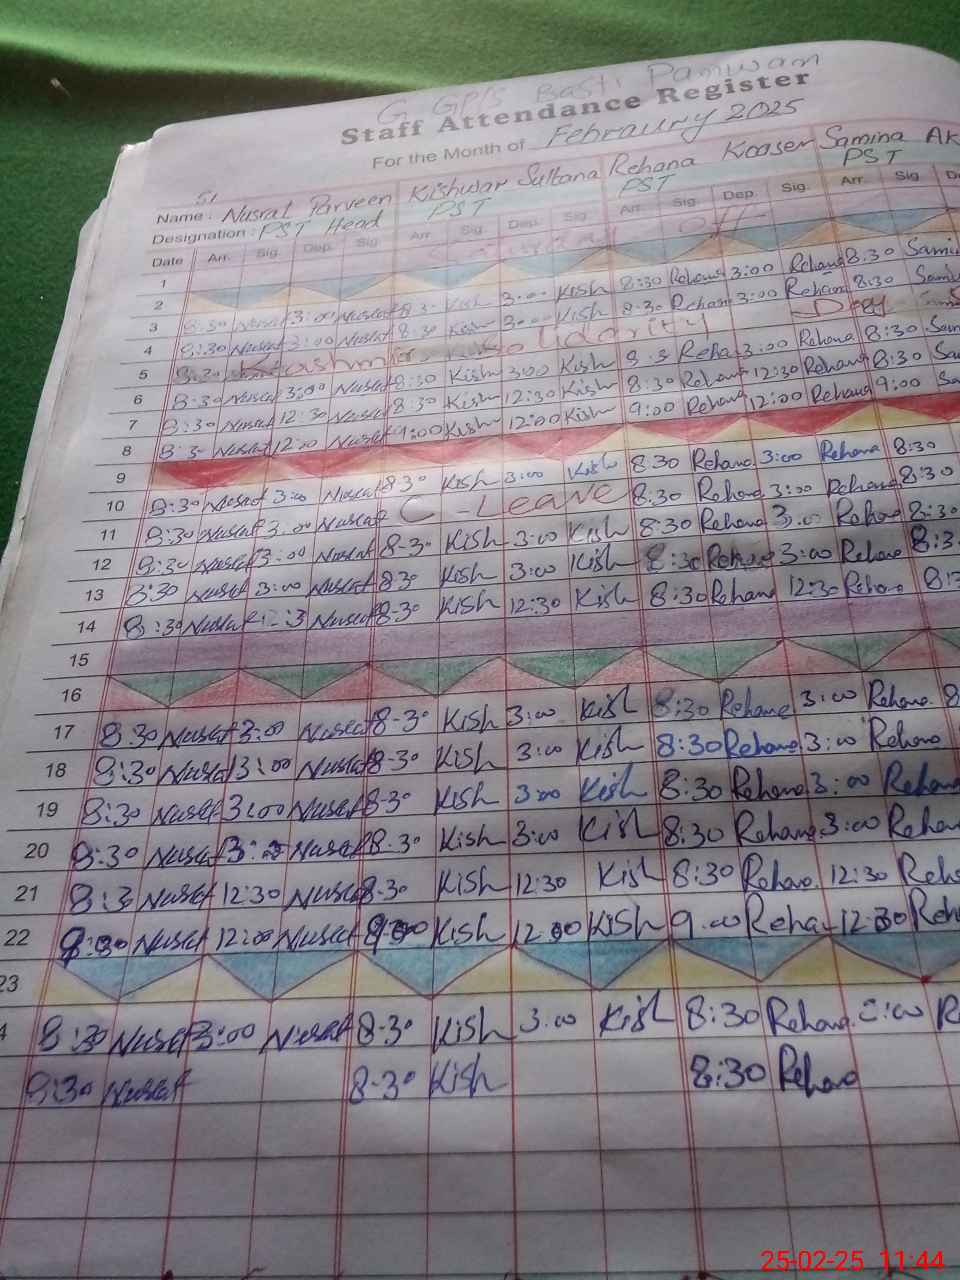 G. GPS Basti Pamwam
Staff Attendance Register
For the Month of Febrauury 2025
Name : Nusrat Parveen Kishwar Sultana Rehana Koasem Samina Ak
Designation : PST Head PST PST PST
Date Arr. Sig. Dep. Sig. Arr. Sig. Dep. Sig. Arr. Sig. Dep. Sig. Arr. Sig. De
1
2
3 8:30 Nusrat 3:00 Nusrat 8:30 Kish 3:00 Kish 8:30 Rehana 3:00 Rehana 8:30 Sami
4 8:30 Nusrat 3:00 Nusrat 8:30 Kish 3:00 Kish 8:30 Rehana 3:00 Rehana 8:30 Sami
5 Kashmir Solidarity Day
6 8:30 Nusrat 3:00 Nusrat 8:30 Kish 3:00 Kish 8:3 Reha 3:00 Rehana 8:30 Sam
7 8:30 Nusrat 12:30 Nusrat 8:30 Kish 12:30 Kish 8:30 Rehana 12:30 Rehana 8:30 Sa
8 8:30 Nusrat 12:00 Nusrat 9:00 Kish 12:00 Kish 9:00 Rehana 12:00 Rehana 9:00 Sa
9
10 8:30 Nusrat 3:00 Nusrat 8:30 Kish 3:00 Kish 8:30 Rehana 3:00 Rehana 8:30
11 8:30 Nusrat 3:00 Nusrat C-Leave 8:30 Rehana 3:00 Rehana 8:30
12 8:30 Nusrat 3:00 Nusrat 8-30 Kish 3:00 Kish 8:30 Rehana 3:00 Rehana 8:30
13 8:30 Nusrat 3:00 Nusrat 8-30 Kish 3:00 Kish 8:30 Rehana 3:00 Rehana 8:3
14 8:30 Nusrat 12:3 Nusrat 8-30 Kish 12:30 Kish 8:30 Rehana 12:30 Rehana 8:3
15
16
17 8:30 Nusrat 3:00 Nusrat 8-30 Kish 3:00 Kish 8:30 Rehana 3:00 Rehana 8
18 8:30 Nusrat 3:00 Nusrat 8-30 Kish 3:00 Kish 8:30 Rehana 3:00 Rehana
19 8:30 Nusrat 3:00 Nusrat 8-30 Kish 3:00 Kish 8:30 Rehana 3:00 Rehana
20 8:30 Nusrat 3:00 Nusrat 8-30 Kish 3:00 Kish 8:30 Rehana 3:00 Rehana
21 8:3 Nusrat 12:30 Nusrat 8-30 Kish 12:30 Kish 8:30 Rehana 12:30 Reha
22 9:00 Nusrat 12:00 Nusrat 9:00 Kish 12:00 Kish 9:00 Reha 12:30 Reh
23
4 8:30 Nusrat 3:00 Nusrat 8-30 Kish 3:00 Kish 8:30 Rehana 3:00 R
8:30 Nusrat 8-30 Kish 8:30 Rehana
25-02-25 11:44